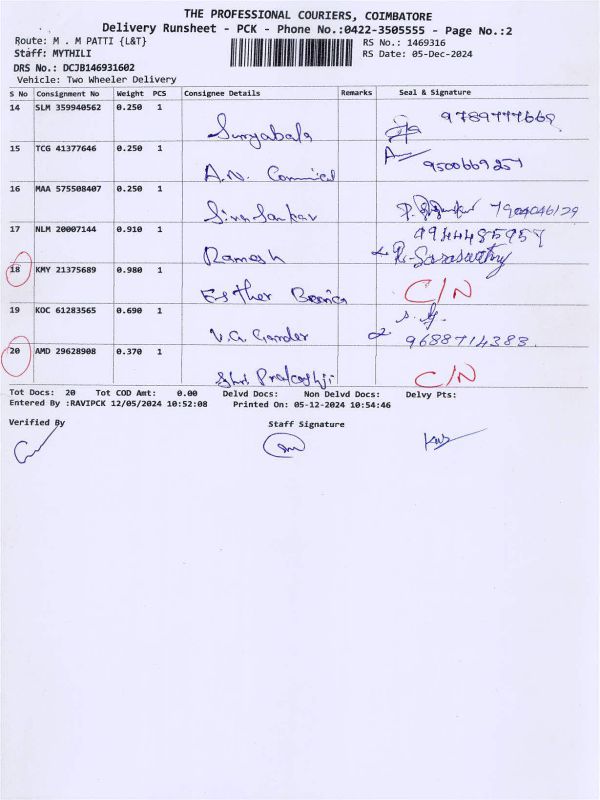 THE PROFESSIONAL COURIERS, COIMBATORE
Delivery Runsheet - PCK - Phone No.:0422-3505555 - Page No.:2
Route: M . M PATTI {L&T} RS No.: 1469316
Staff: MYTHILI RS Date: 05-Dec-2024
DRS No.: DCJB146931602
Vehicle: Two Wheeler Delivery
S No Consignment No Weight PCS Consignee Details Remarks Seal & Signature
14 SLM 359940562 0.250 1
Suryabala 9789777668
15 TCG 41377646 0.250 1
A.N. 9500669257
16 MAA 575508407 0.250 1
Siva Sankar 7904046129
17 NLM 20007144 0.910 1 9944485957
Ramesh
18 KMY 21375689 0.980 1
Esther C/N
19 KOC 61283565 0.690 1
V.G. 9688714383
20 AMD 29628908 0.370 1
Shri C/N
Tot Docs: 20 Tot COD Amt: 0.00 Delvd Docs: Non Delvd Docs: Delvy Pts:
Entered By :RAVIPCK 12/05/2024 10:52:08 Printed On: 05-12-2024 10:54:46
Verified By Staff Signature